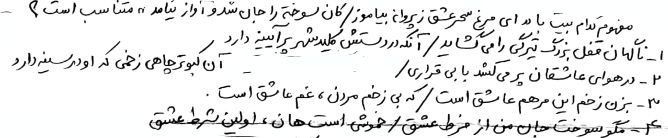 مفهوم کدام بیت با بیت «ای مرغ سحر عشق ز پروانه بیاموز / کان سوخته را جان شد و آواز نیامد» متناسب است؟
۱- ناگهان قفل بزرگ تیرگی را می‌گشاید / آنکه در دستش کلید شهر پر آیینه دارد
۲- در هوای عاشقان پر می‌کشد با بی قراری / آن کبوتر چاهی زخمی که او در سینه دارد
۳- بزن زخم این مرهم عاشق است / که بی زخم مردن، غم عاشق است.
۴- مگو سوخت جان من از فرط عشق / خموشی است هان، اولین شرط عشق